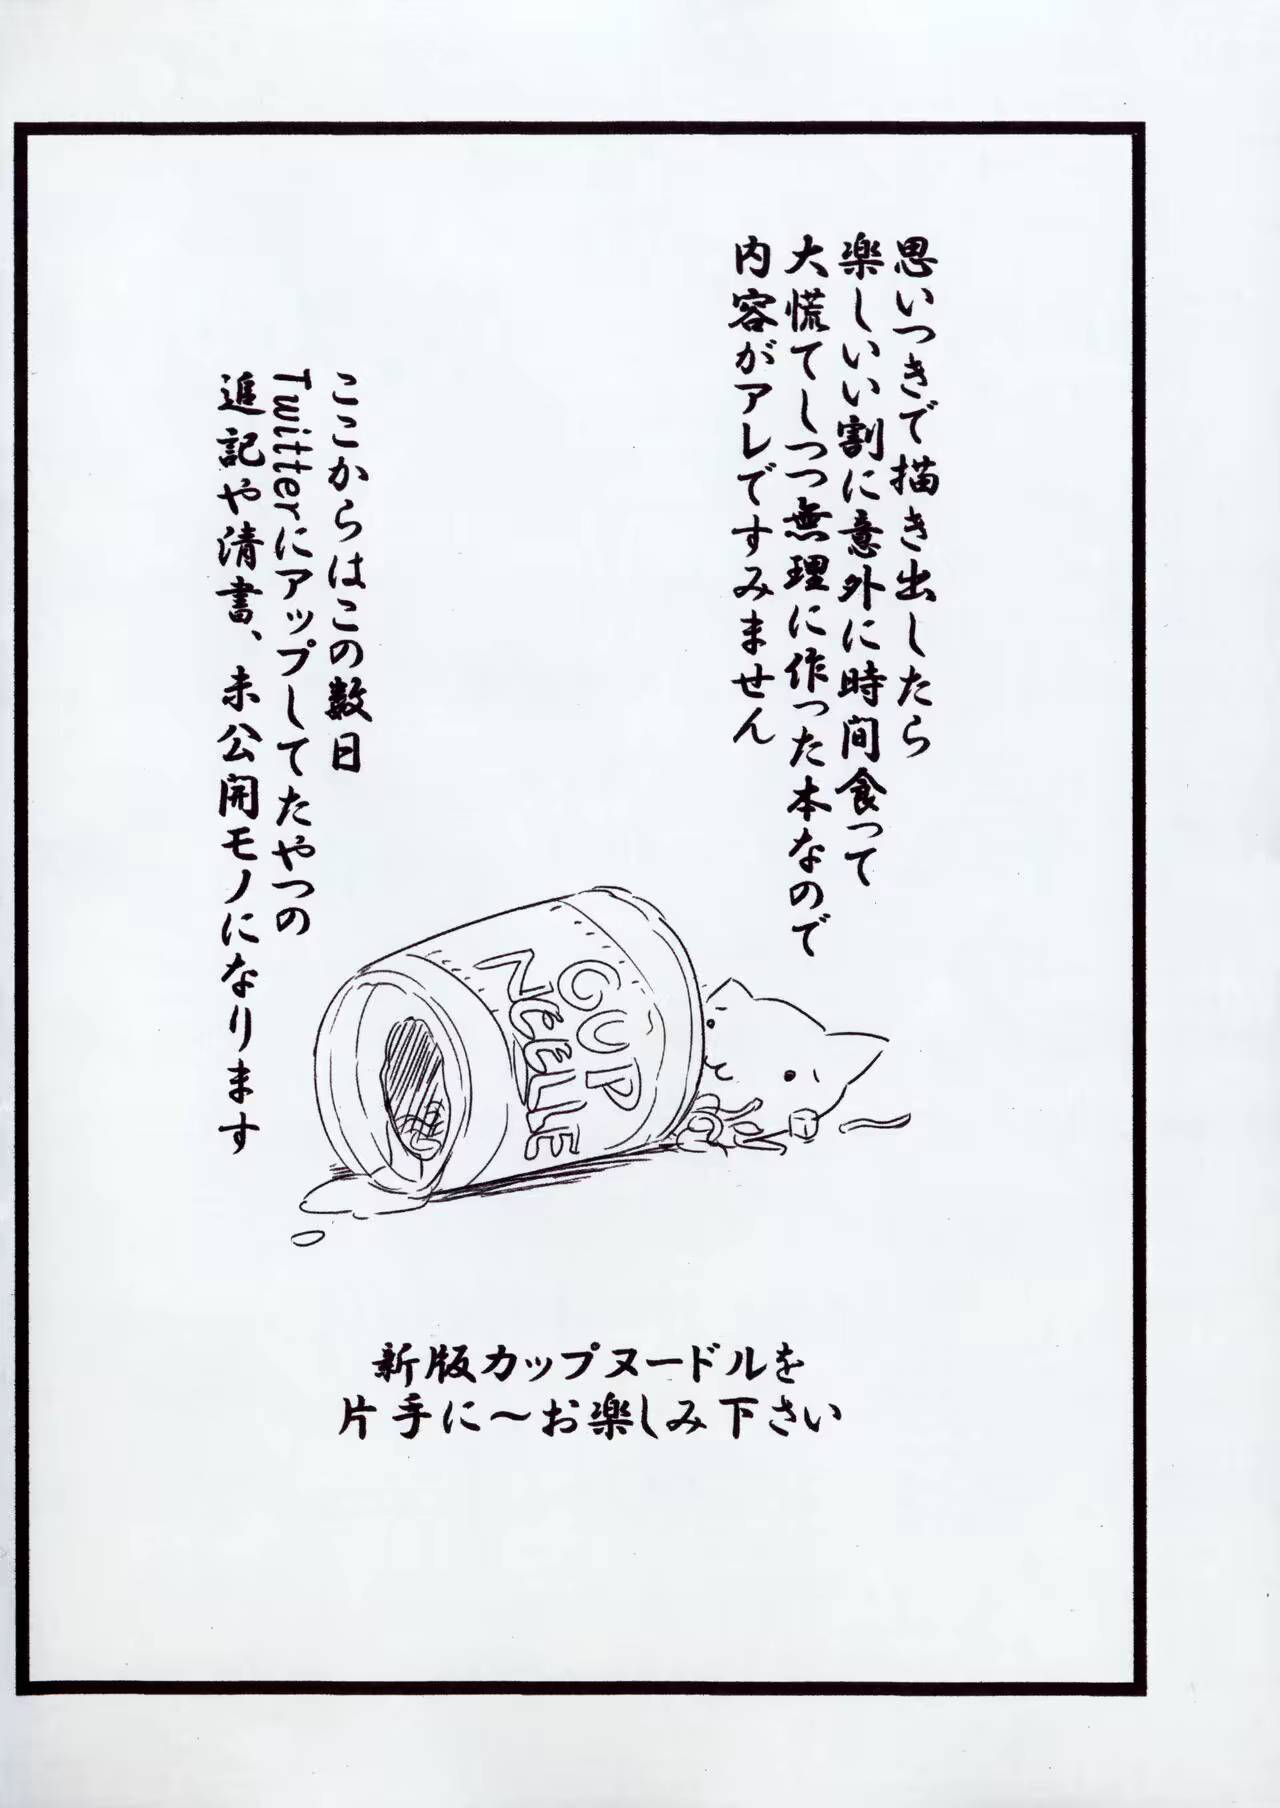 思いつきで描き出したら
楽しいい割に意外に時間食って
大慌てしつつ無理に作った本なので
内容がアレですみません
ここからはこの数日
Twitterにアップしてたやつの
追記や清書、未公開モノになります
CUP
NEELLE
新版カップヌードルを
片手に〜お楽しみ下さい